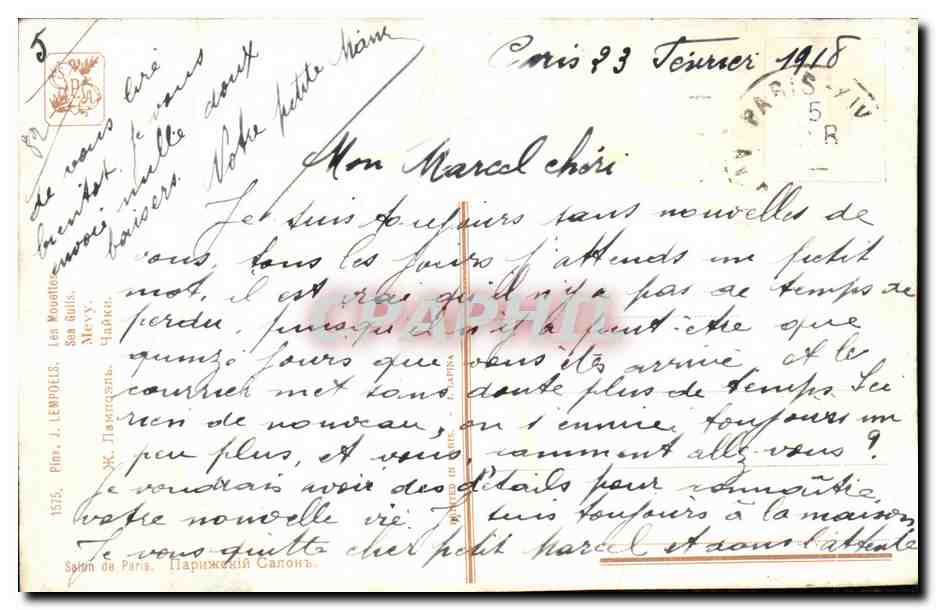 5
Paris 23 Février 1918
PARIS XIV
5
R
Mon Marcel chéri
Je suis toujours sans nouvelles de
vous, tous les jours j'attends un petit
mot, il est vrai qu'il n'y a pas de temps de
perdu, puisqu'il n'y a peut-être que
quinze jours que vous êtes arrivé et le
courrier met sans doute plus de temps. Ici
rien de nouveau, on s'ennuie toujours un
peu plus, et vous, comment allez-vous?
Je voudrais avoir des détails pour connaître
votre nouvelle vie. Je suis toujours à la maison
Je vous quitte cher petit Marcel et dans l'attente
de vous lire
bientôt. Je vous
envoie mille doux
baisers. Votre petite Naine
1575. Pinx. J. LEMPOELS. Les Mouettes.
Sea Gulls.
Mevy.
Ж. Лампоэль. Чайки.
PRINTED IN PARIS. - I. LAPINA
Salon de Paris. Парижскій Салонъ.
CPAPHIL